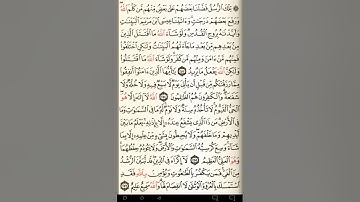 تِلْكَ ٱلرُّسُلُ فَضَّلْنَا بَعْضَهُمْ عَلَىٰ بَعْضٍ مِّنْهُم مَّن كَلَّمَ ٱللَّهُ
وَرَفَعَ بَعْضَهُمْ دَرَجَٰتٍ وَءَاتَيْنَا عِيسَى ٱبْنَ مَرْيَمَ ٱلْبَيِّنَٰتِ
وَأَيَّدْنَٰهُ بِرُوحِ ٱلْقُدُسِ وَلَوْ شَآءَ ٱللَّهُ مَا ٱقْتَتَلَ ٱلَّذِينَ
مِنۢ بَعْدِهِم مِّنۢ بَعْدِ مَا جَآءَتْهُمُ ٱلْبَيِّنَٰتُ وَلَٰكِنِ ٱخْتَلَفُوا۟
فَمِنْهُم مَّنْ ءَامَنَ وَمِنْهُم مَّن كَفَرَ وَلَوْ شَآءَ ٱللَّهُ مَا ٱقْتَتَلُوا۟
وَلَٰكِنَّ ٱللَّهَ يَفْعَلُ مَا يُرِيدُ ٢٥٣ يَٰٓأَيُّهَا ٱلَّذِينَ ءَامَنُوٓا۟ أَنفِقُوا۟
مِمَّا رَزَقْنَٰكُم مِّن قَبْلِ أَن يَأْتِىَ يَوْمٌ لَّا بَيْعٌ فِيهِ وَلَا خُلَّةٌ وَلَا
شَفَٰعَةٌ وَٱلْكَٰفِرُونَ هُمُ ٱلظَّٰلِمُونَ ٢٥٤ ٱللَّهُ لَآ إِلَٰهَ إِلَّا هُوَ
ٱلْحَىُّ ٱلْقَيُّومُ لَا تَأْخُذُهُۥ سِنَةٌ وَلَا نَوْمٌ لَّهُۥ مَا فِى ٱلسَّمَٰوَٰتِ وَمَا
فِى ٱلْأَرْضِ مَن ذَا ٱلَّذِى يَشْفَعُ عِندَهُۥٓ إِلَّا بِإِذْنِهِۦ يَعْلَمُ مَا بَيْنَ
أَيْدِيهِمْ وَمَا خَلْفَهُمْ وَلَا يُحِيطُونَ بِشَىْءٍ مِّنْ عِلْمِهِۦٓ إِلَّا بِمَا
شَآءَ وَسِعَ كُرْسِيُّهُ ٱلسَّمَٰوَٰتِ وَٱلْأَرْضَ وَلَا يَـُٔودُهُۥ حِفْظُهُمَا
وَهُوَ ٱلْعَلِىُّ ٱلْعَظِيمُ ٢٥٥ لَآ إِكْرَاهَ فِى ٱلدِّينِ قَد تَّبَيَّنَ ٱلرُّشْدُ
مِنَ ٱلْغَىِّ فَمَن يَكْفُرْ بِٱلطَّٰغُوتِ وَيُؤْمِنۢ بِٱللَّهِ فَقَدِ
ٱسْتَمْسَكَ بِٱلْعُرْوَةِ ٱلْوُثْقَىٰ لَا ٱنفِصَامَ لَهَا وَٱللَّهُ سَمِيعٌ عَلِيمٌ ٢٥٦